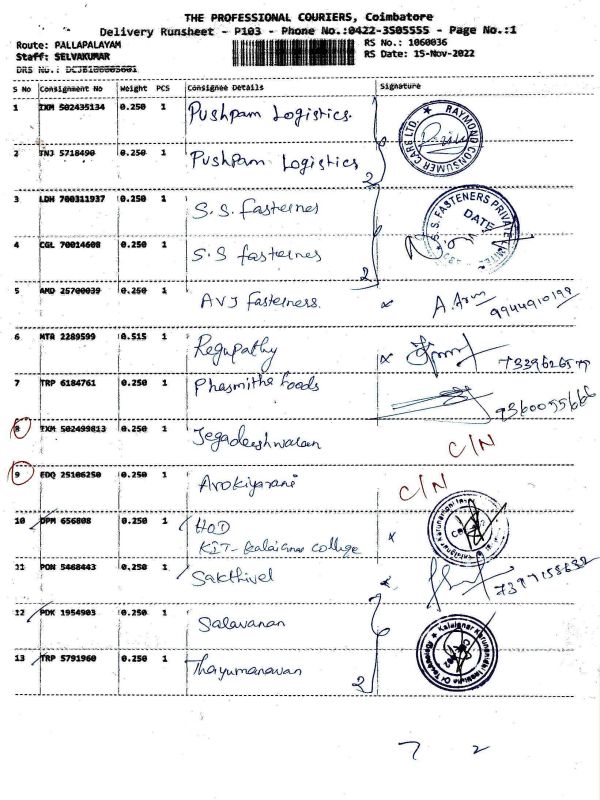 THE PROFESSIONAL COURIERS, Coimbatore
Delivery Runsheet - P103 - Phone No.:0422-3505555 - Page No.:1
Route: PALLAPALAYAM RS No.: 1060036
Staff: SELVAKUMAR RS Date: 15-Nov-2022
DRS No.: DCJB100005601
S No Consignment No Weight PCS Consignee Details Signature
1 IXM 502435134 0.250 1 Pushpam Logistics. RAYMOND CONSUMER CARE LTD.
2 TNJ 5718490 0.250 1 Pushpam Logistics 2
3 LDH 700311937 0.250 1 S.S. fasterner S.S. FASTENERS PRIVATE DATE
4 CGL 70014608 0.250 1 S.S fasterner 2
5 AMD 25700039 0.250 1 AVJ fasterness. x A. Arun 9944910199
6 MTR 2289599 0.515 1 Regupathy x
7 TRP 6184761 0.250 1 Phasmitha foods 9360055666
8 IXM 502499813 0.250 1 Jegadeeshwaran C/N
9 EDQ 25106250 0.250 1 Arokiyarani C/N
10 DPM 656808 0.250 1 HOD x
KIT-Kalaignar college
11 PON 5468443 0.250 1 Sakthivel x
12 PDK 1954903 0.250 1 Salavanan
13 TRP 5791960 0.250 1 Thayumanavan 2 Kalaignar Karunanidhi Institute Of Technology
7 2